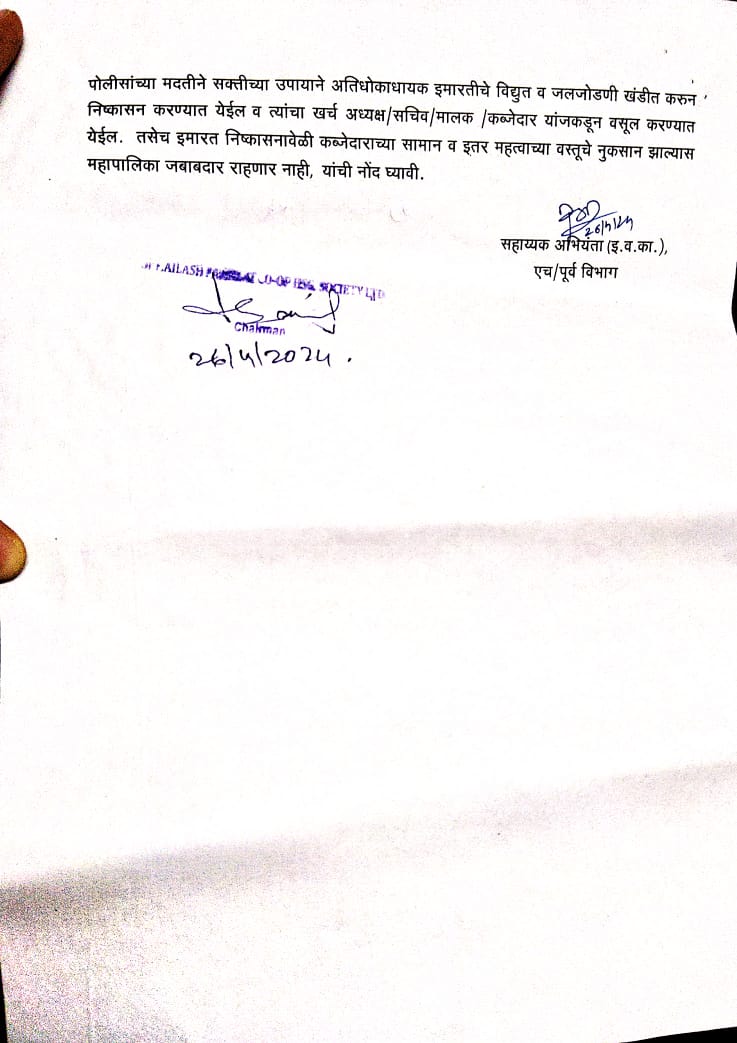 पोलीसांच्या मदतीने सक्तीच्या उपायाने अतिधोकाधायक इमारतीचे विद्युत व जलजोडणी खंडीत करुन
निष्कासन करण्यात येईल व त्यांचा खर्च अध्यक्ष/सचिव/मालक /कब्जेदार यांजकडून वसूल करण्यात
येईल. तसेच इमारत निष्कासनावेळी कब्जेदाराच्या सामान व इतर महत्वाच्या वस्तूचे नुकसान झाल्यास
महापालिका जबाबदार राहणार नाही, यांची नोंद घ्यावी.
26/4/24
सहाय्यक अभियंता (इ.व.का.),
एच/पूर्व विभाग
CO-OP HSG. SOCIETY LTD
Chairman
26/4/2024.